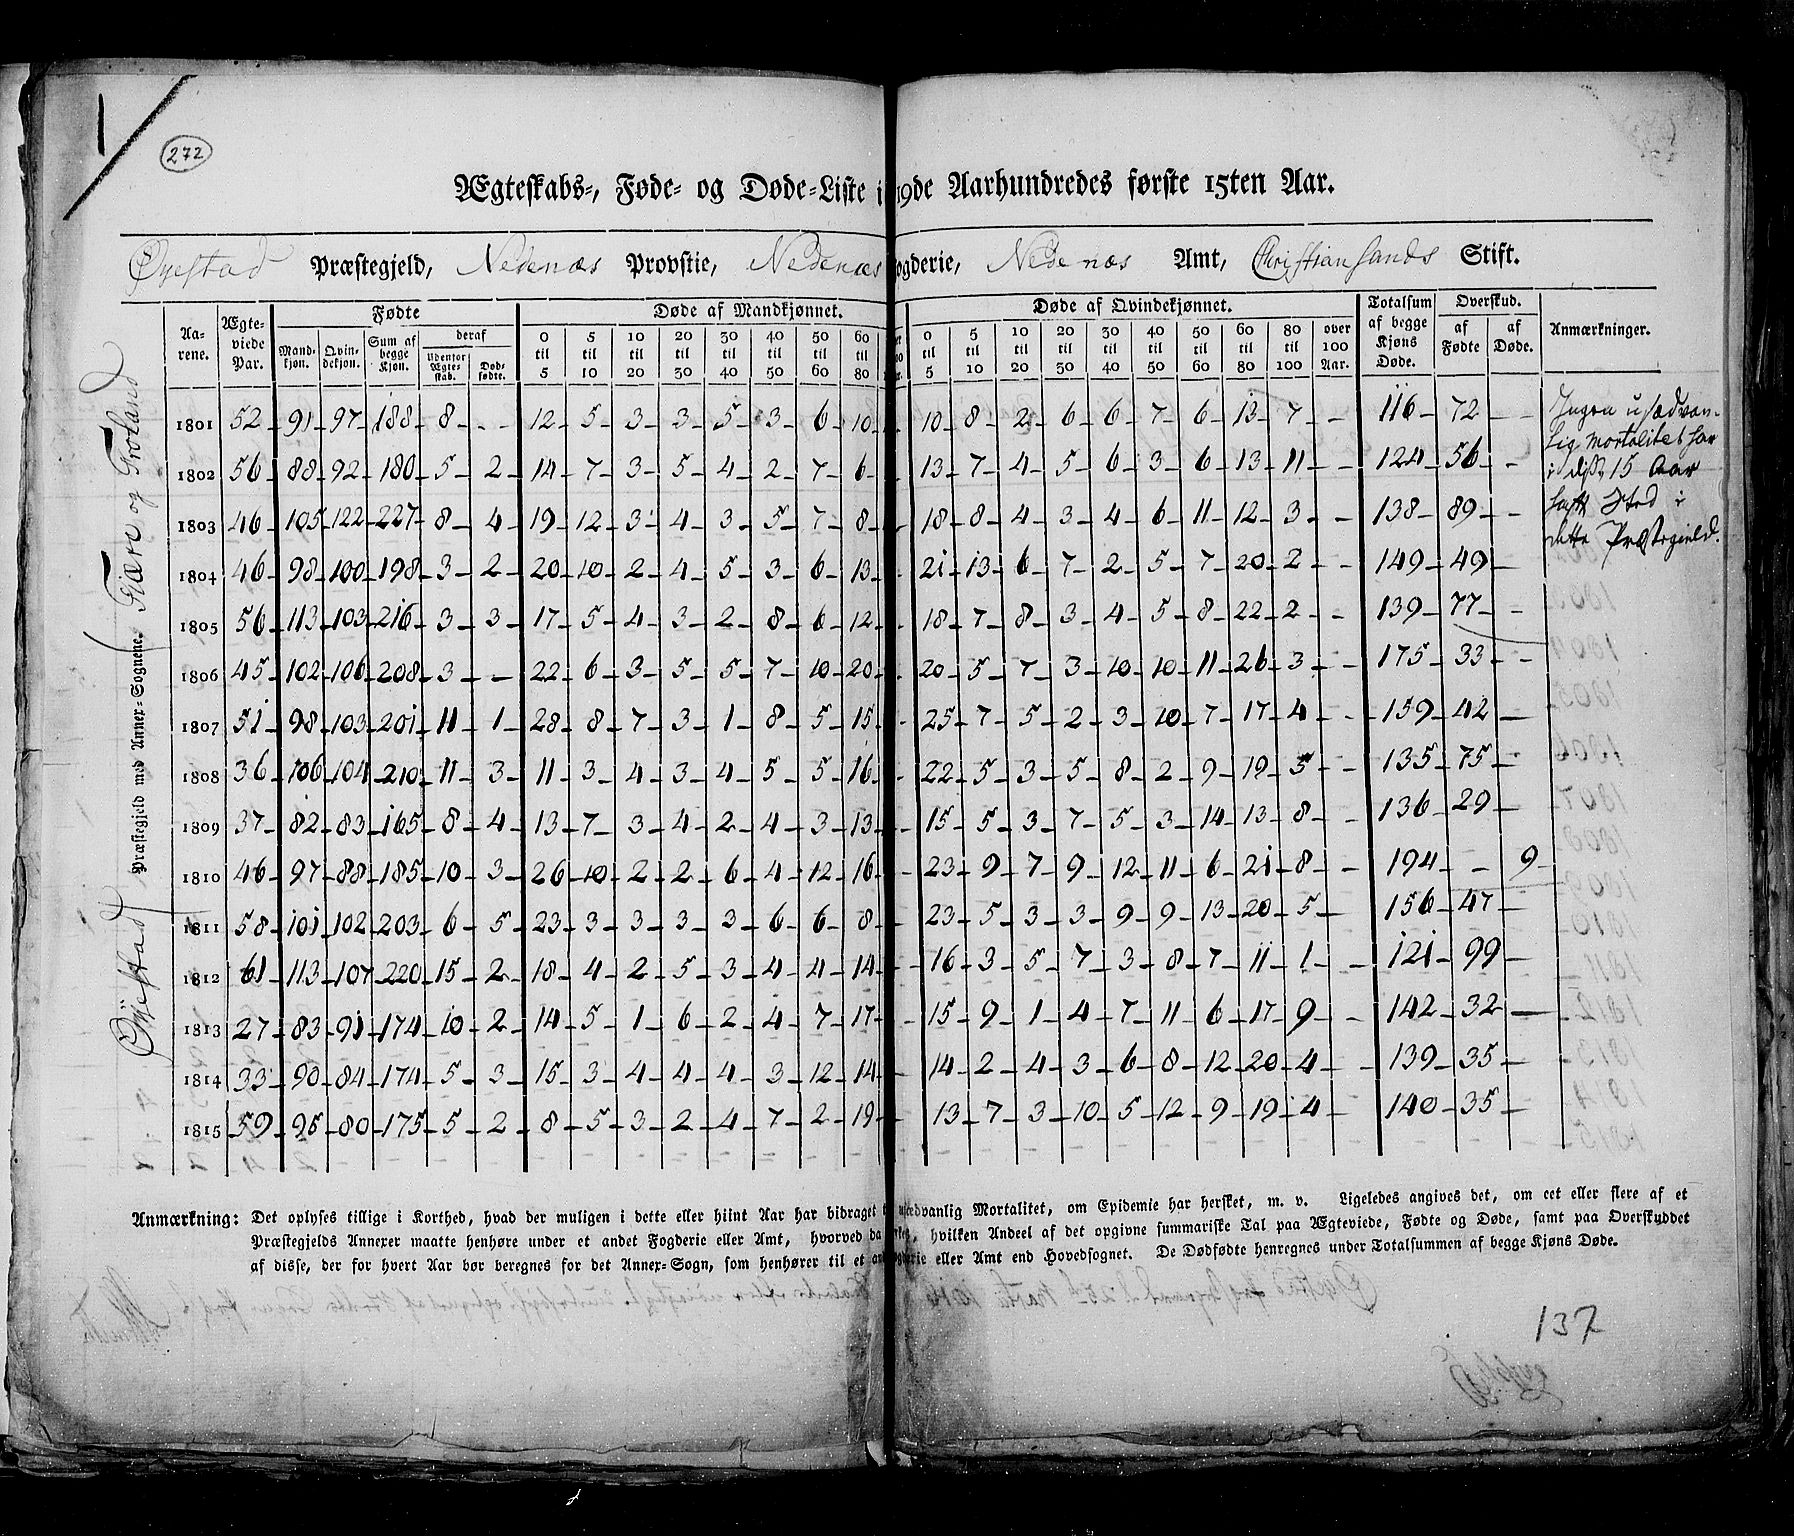 1
272
Ægteskabs-, Føde- og Døde-Liste i 19de Aarhundredes første 15ten Aar.
Øyestad Præstegjeld, Nedenæs Provstie, Nedenæs ogderie, Nedenæs Amt, Christiansands Stift.
Øyestad Præstegjeld med Annex-Sognene. Fiære og Froland
Aarene. Ægteviede Par. Fødte Døde af Mandkjønnet. Døde af Qvindekjønnet. Totalsum af begge Kjøns Døde. Overskud. Anmærkninger.
Mandkjøn. Qvindekjøn. Sum af begge Kjøn. deraf Udenfor Ægteskab. Dødfødte. 0 til 5 5 til 10 10 til 20 20 til 30 30 til 40 40 til 50 50 til 60 60 til 80 0 til 5 5 til 10 10 til 20 20 til 30 30 til 40 40 til 50 50 til 60 60 til 80 80 til 100 over 100 Aar. af Fødte af Døde.
1801 52 91 97 188 8 - - 12 5 3 3 5 3 6 10 10 8 2 6 6 7 6 13 7 - 116 72 -
1802 56 88 92 180 5 2 14 7 3 5 4 2 7 6 13 7 4 5 6 3 6 13 11 - 124 56 -
1803 46 105 122 227 8 4 19 12 3 4 3 5 7 8 18 8 4 3 4 6 11 12 3 - 138 89 -
1804 46 98 100 198 3 2 20 10 2 4 5 3 6 13 21 13 6 7 2 5 7 20 2 - 149 49 -
1805 56 113 103 216 3 3 17 5 4 3 2 8 6 12 18 7 8 3 4 5 8 22 2 - 139 77 -
1806 45 102 106 208 3 - 22 6 3 5 5 7 10 20 20 5 7 3 10 10 11 26 3 - 175 33 -
1807 51 98 103 201 11 1 28 8 7 3 1 8 5 15 25 7 5 2 3 10 7 17 4 - 159 42 -
1808 36 106 104 210 11 3 11 3 4 3 4 5 5 16 22 5 3 5 8 2 9 19 5 - 135 75 -
1809 37 82 83 165 8 4 13 7 3 4 2 4 3 13 15 5 3 7 5 3 14 13 8 - 136 29 -
1810 46 97 88 185 10 3 26 10 2 2 6 4 12 16 23 9 7 9 12 11 6 21 8 - 194 - 9
1811 58 101 102 203 6 5 23 3 3 3 3 6 6 8 23 5 3 3 9 9 13 20 5 - 156 47 -
1812 61 113 107 220 15 2 18 4 2 5 3 4 4 14 16 3 5 7 3 8 7 11 1 - 121 99 -
1813 27 83 91 174 10 2 14 5 1 6 2 4 7 17 15 9 1 4 7 11 6 17 9 - 142 32 -
1814 33 90 84 174 5 3 15 3 4 4 4 3 12 14 14 2 4 3 6 8 12 20 4 - 139 35 -
1815 59 95 80 175 5 2 8 5 3 2 4 7 2 19 13 7 3 10 5 12 9 19 4 - 140 35 -
Ingen usædvan-
lig mortalitet har
i disse 15 Aar
havt Sted i
dette Præstegield.
Anmærkning: Det oplyses tillige i Korthed, hvad der muligen i dette eller hiint Aar har bidraget t usædvanlig Mortalitet, om Epidemie har hersket, m. v. Ligeledes angives det, om eet eller flere af et
Præstegjelds Annexer maatte henhøre under et andet Fogderie eller Amt, hvorved da rkes, hvilken Andeel af det opgivne summariske Tal paa Ægteviede, Fødte og Døde, samt paa Overskuddet
af disse, der for hvert Aar bør beregnes for det Annex-Sogn, som henhører til et an gderie eller Amt end Hovedsognet. De Dødfødte henregnes under Totalsummen af begge Kjøns Døde.
137